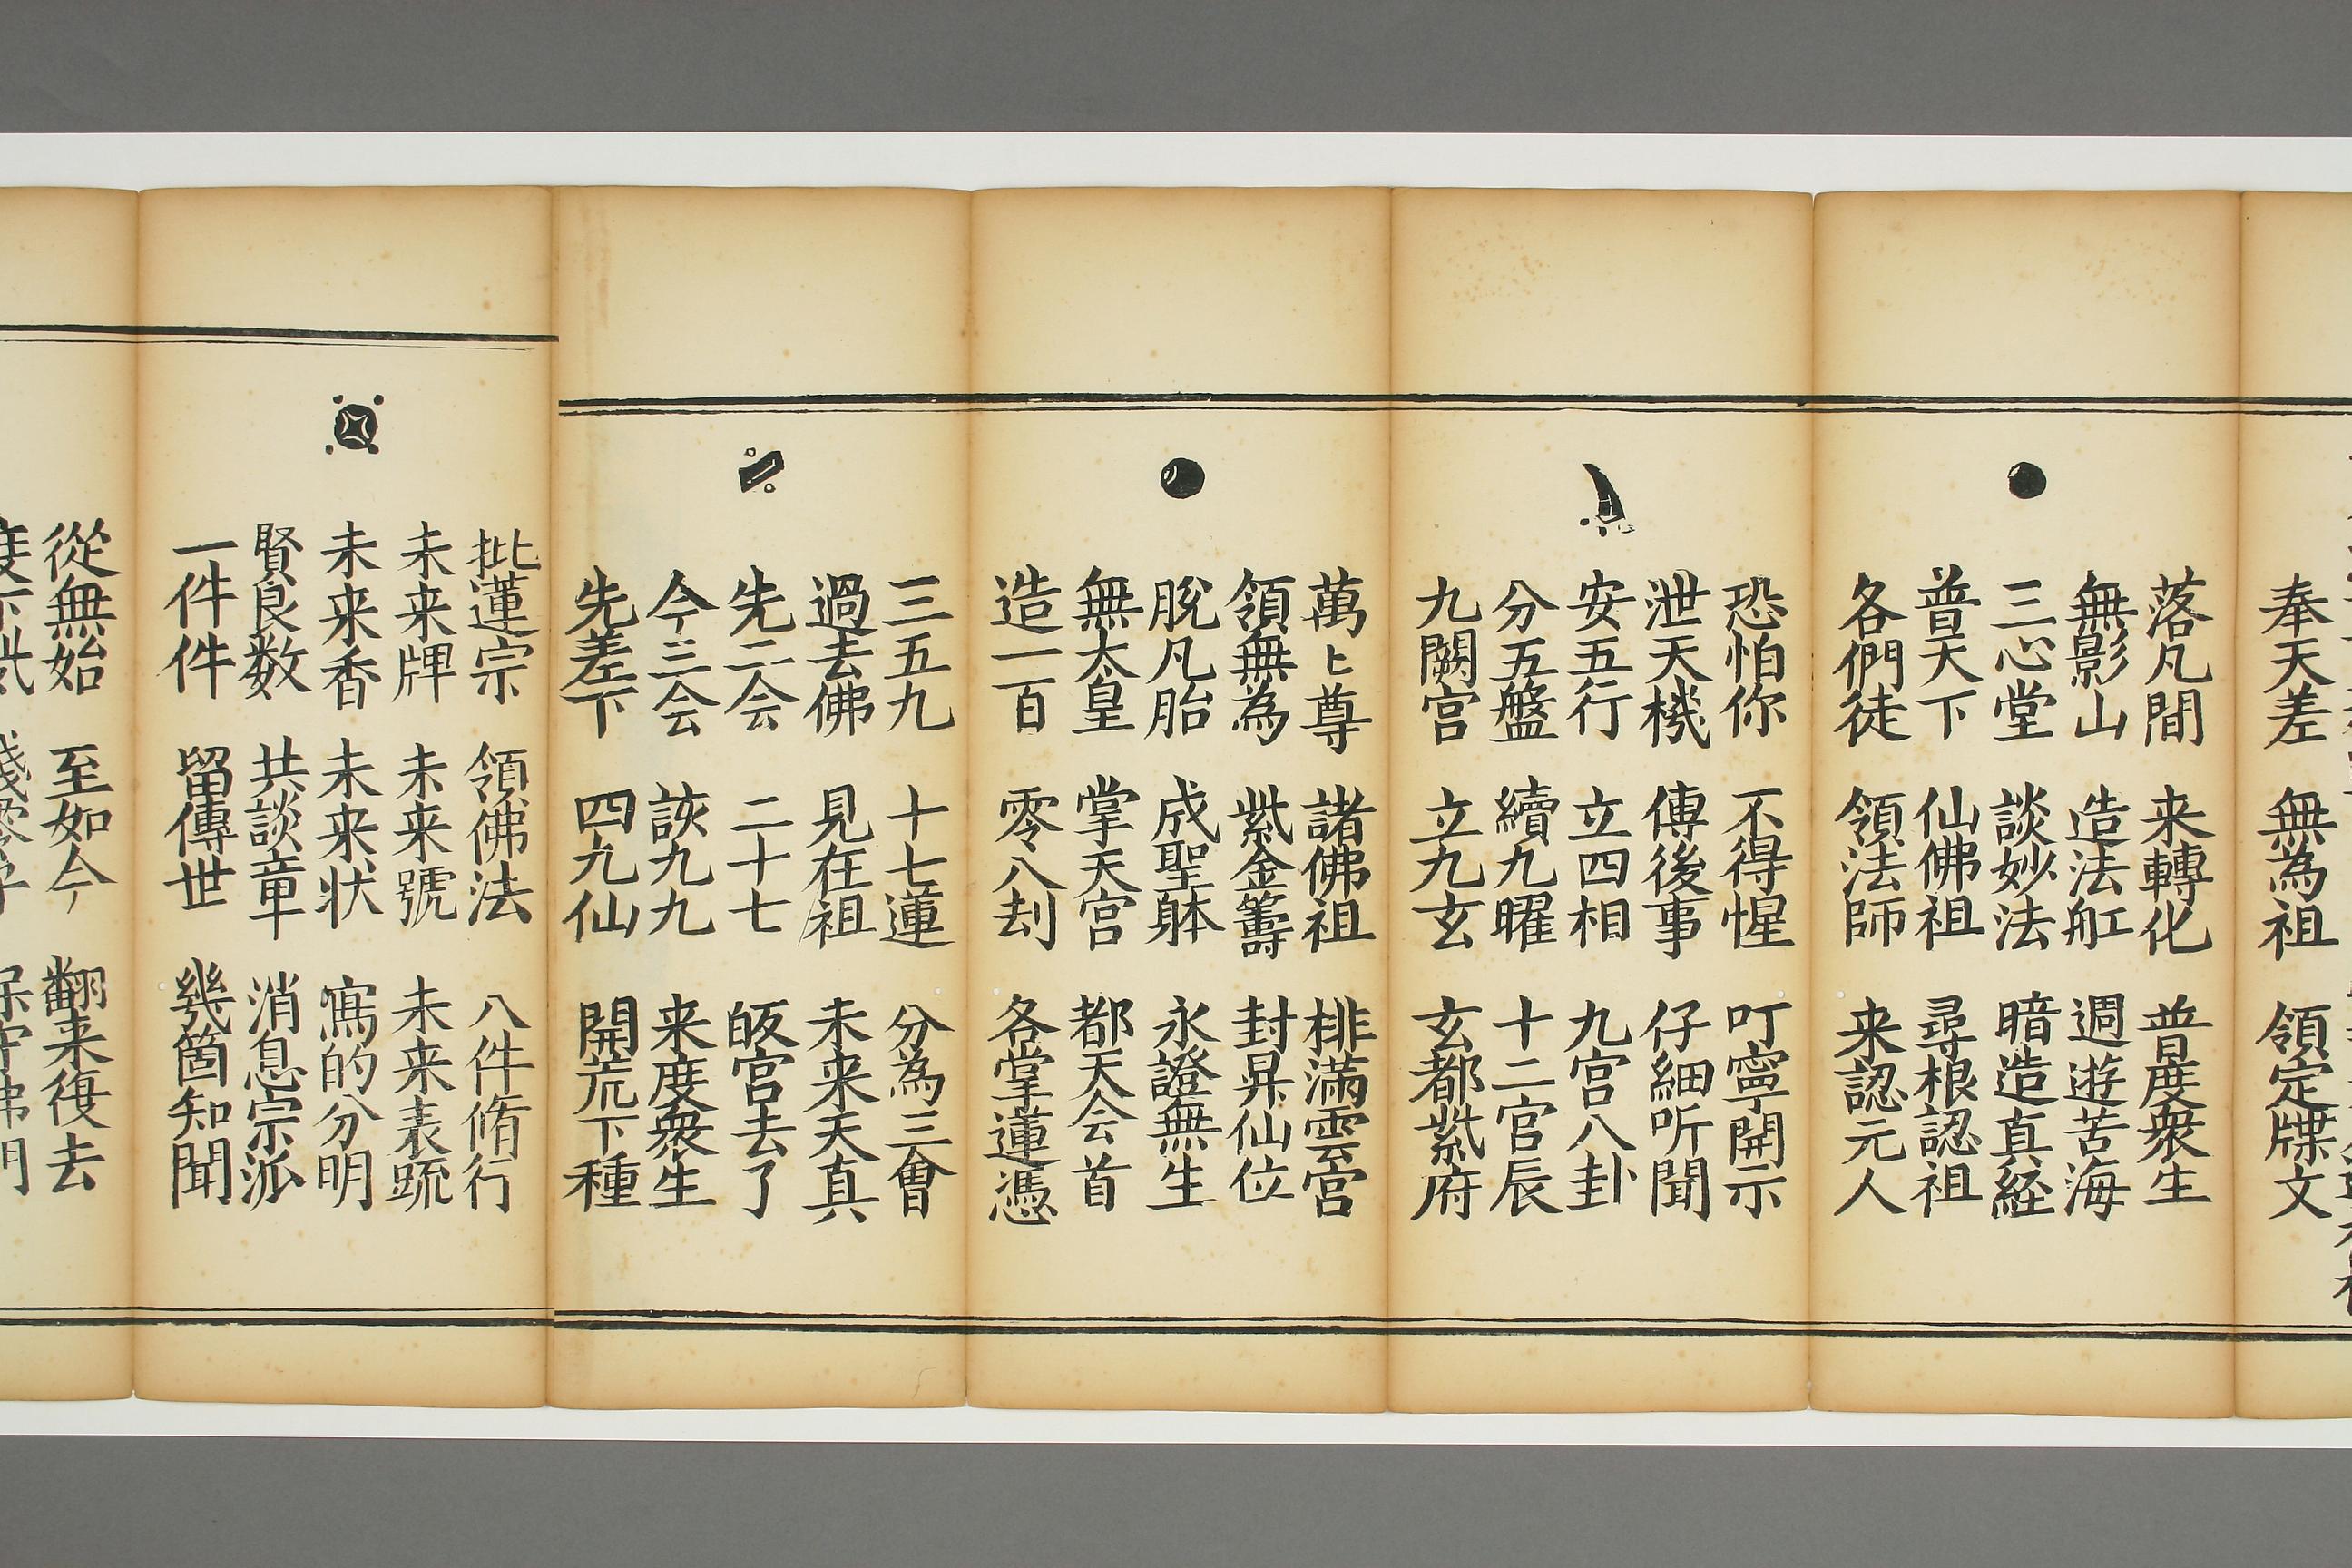 奉天差 無為祖 領定牒文
落凡間 来轉化 普度衆生
無影山 造法舡 週遊苦海
三心堂 談妙法 暗造真経
普天下 仙佛祖 尋根認祖
各們徒 領法師 来認元人
恐怕你 不得惺 叮寧開示
泄天機 傳後事 仔細听聞
安五行 立四相 九宫八卦
分五盤 續九曜 十二官辰
九闕宫 立九玄 玄都紫府
萬〻尊 諸佛祖 排滿雲宫
領無為 紫金籌 封昇仙位
脫凡胎 成聖躰 永證無生
無太皇 掌天宫 都天会首
造一百 零八刼 各掌蓮憑
三五九 十七蓮 分為三會
過去佛 見在祖 未来天真
先二会 二十七 皈宫去了
今三会 該九九 来度衆生
先差下 四九仙 開荒下種
批蓮宗 領佛法 八件脩行
未来牌 未来號 未来表䟽
未来香 未来状 寫的分明
賢良数 共談章 消息宗派
一件件 留傳世 幾箇知聞
從無始 至如今 翻来復去